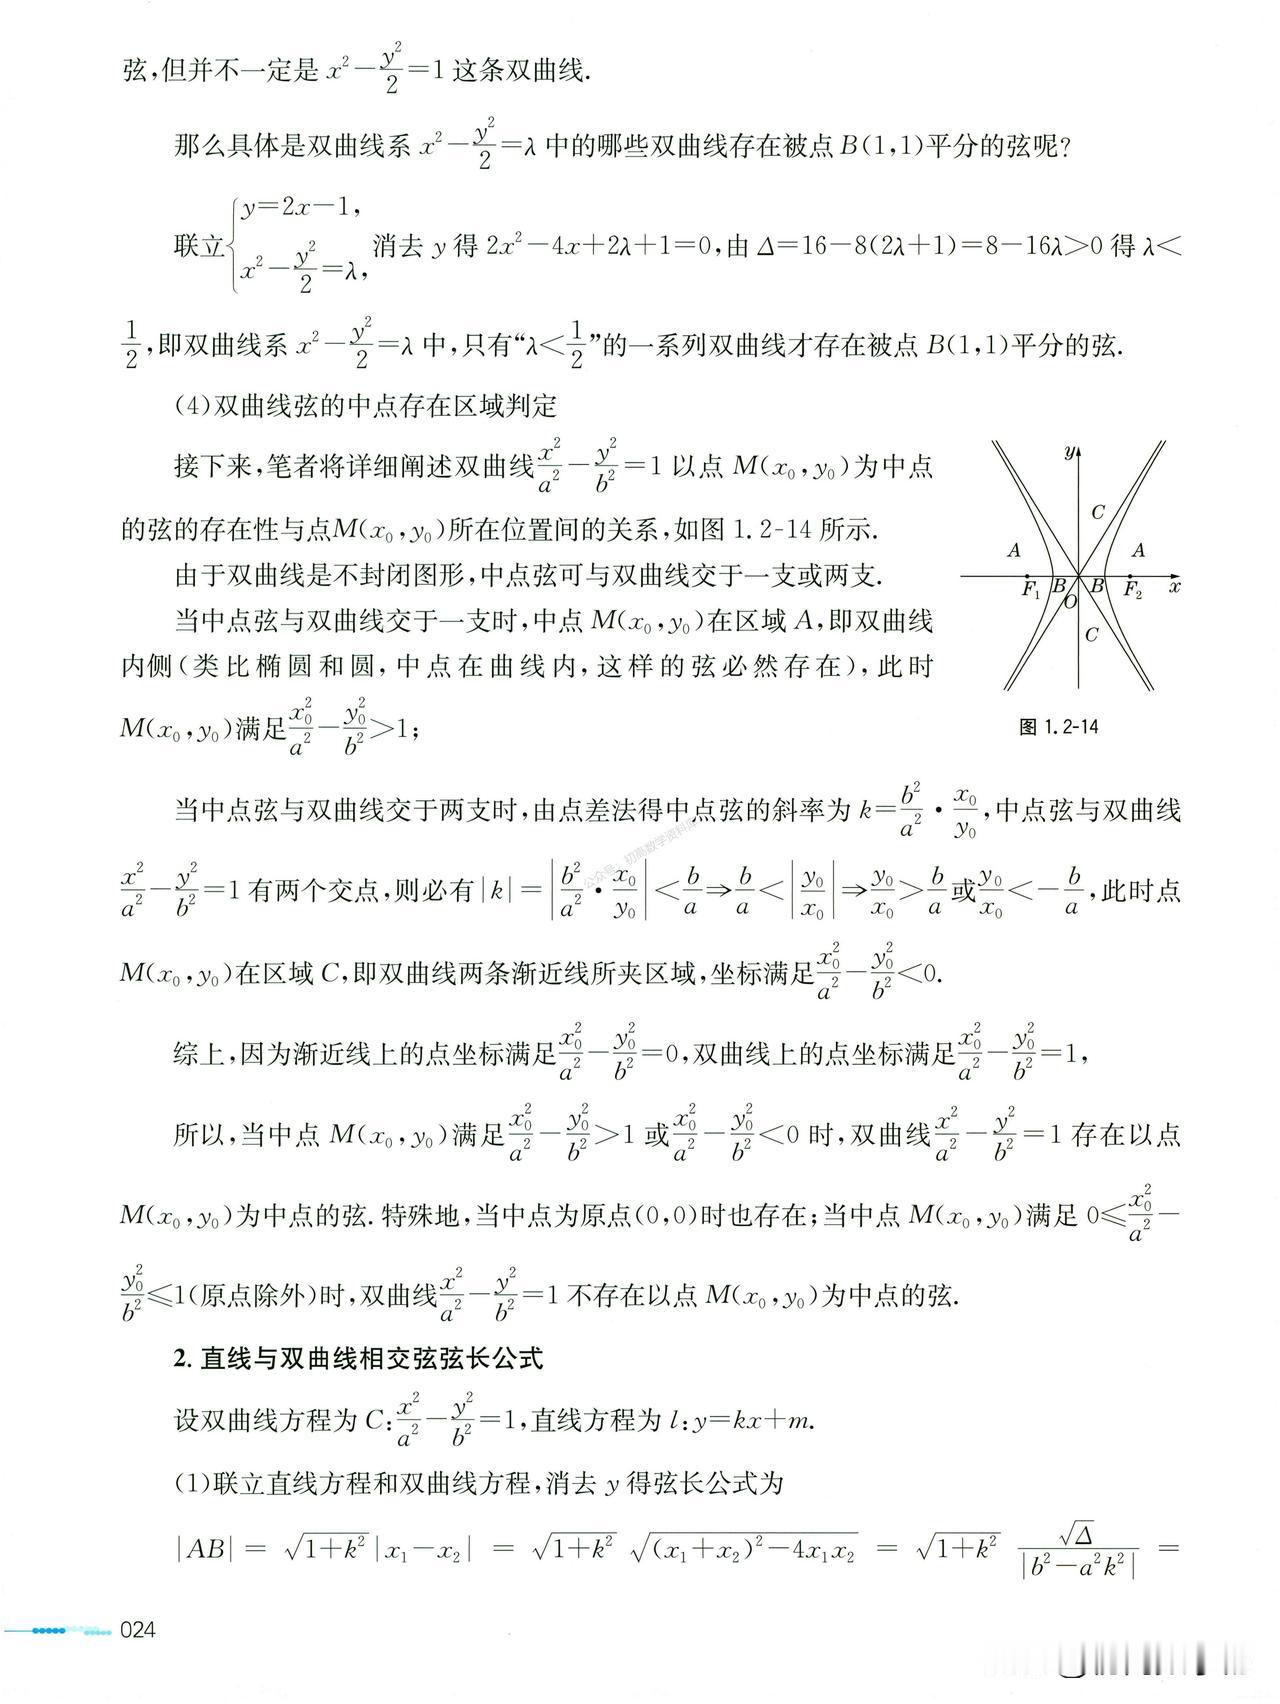 弦,但并不一定是 x²－y²/2＝1 这条双曲线.
那么具体是双曲线系 x²－y²/2＝λ 中的哪些双曲线存在被点 B(1,1)平分的弦呢?
联立{y＝2x－1, x²－y²/2＝λ, 消去 y 得 2x²－4x＋2λ＋1＝0,由 Δ＝16－8(2λ＋1)＝8－16λ＞0 得 λ＜
1/2,即双曲线系 x²－y²/2＝λ 中,只有“λ＜1/2”的一系列双曲线才存在被点 B(1,1)平分的弦.
(4)双曲线弦的中点存在区域判定
接下来,笔者将详细阐述双曲线x²/a²－y²/b²＝1 以点 M(x₀,y₀)为中点
的弦的存在性与点M(x₀,y₀)所在位置间的关系,如图 1.2-14 所示.
由于双曲线是不封闭图形,中点弦可与双曲线交于一支或两支.
当中点弦与双曲线交于一支时,中点 M(x₀,y₀)在区域 A,即双曲线
内侧(类比椭圆和圆,中点在曲线内,这样的弦必然存在),此时
M(x₀,y₀)满足x₀²/a²－y₀²/b²＞1;
y
C
A A
F₁ B O B F₂ x
C
图 1.2-14
当中点弦与双曲线交于两支时,由点差法得中点弦的斜率为 k＝b²/a²·x₀/y₀,中点弦与双曲线
公众号:初高数学资料库
x²/a²－y²/b²＝1 有两个交点,则必有|k|＝|b²/a²·x₀/y₀|＜b/a⇒b/a＜|y₀/x₀|⇒y₀/x₀＞b/a或y₀/x₀＜－b/a,此时点
M(x₀,y₀)在区域 C,即双曲线两条渐近线所夹区域,坐标满足x₀²/a²－y₀²/b²＜0.
综上,因为渐近线上的点坐标满足x₀²/a²－y₀²/b²＝0,双曲线上的点坐标满足x₀²/a²－y₀²/b²＝1,
所以,当中点 M(x₀,y₀)满足x₀²/a²－y₀²/b²＞1 或x₀²/a²－y₀²/b²＜0 时,双曲线x²/a²－y²/b²＝1 存在以点
M(x₀,y₀)为中点的弦.特殊地,当中点为原点(0,0)时也存在;当中点 M(x₀,y₀)满足 0≤x₀²/a²－
y₀²/b²≤1(原点除外)时,双曲线x²/a²－y²/b²＝1 不存在以点 M(x₀,y₀)为中点的弦.
2. 直线与双曲线相交弦弦长公式
设双曲线方程为 C:x²/a²－y²/b²＝1,直线方程为 l:y＝kx＋m.
(1)联立直线方程和双曲线方程,消去 y 得弦长公式为
|AB|＝√(1＋k²)|x₁－x₂|＝√(1＋k²)√((x₁＋x₂)²－4x₁x₂)＝√(1＋k²) √Δ/|b²－a²k²|＝
024